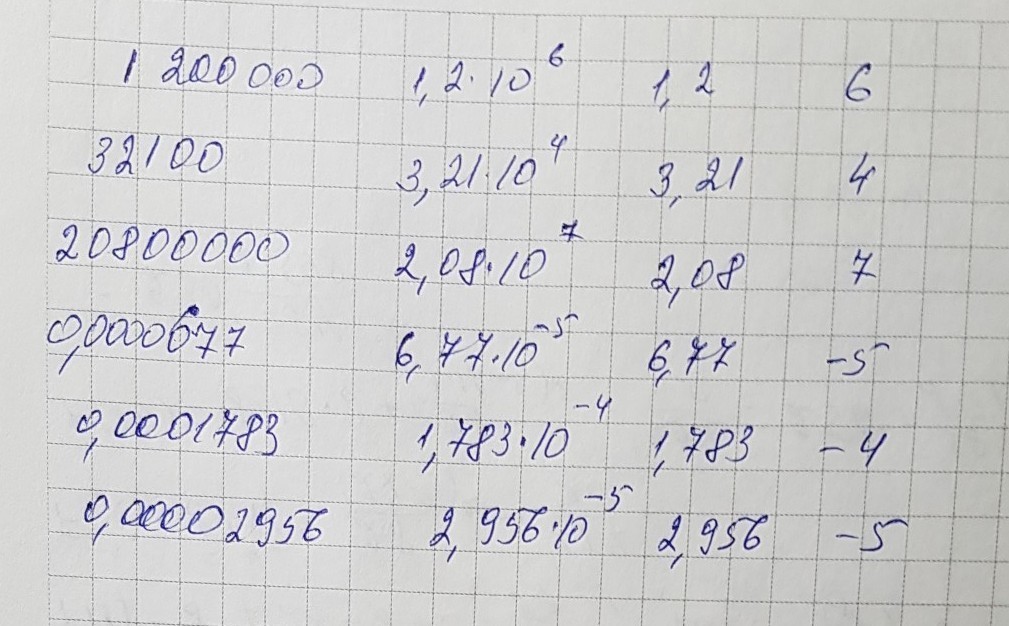 1 200 000 1,2·10⁶ 1,2 6
32100 3,21·10⁴ 3,21 4
20800000 2,08·10⁷ 2,08 7
0,0000677 6,77·10⁻⁵ 6,77 -5
0,0001783 1,783·10⁻⁴ 1,783 -4
0,00002956 2,956·10⁻⁵ 2,956 -5